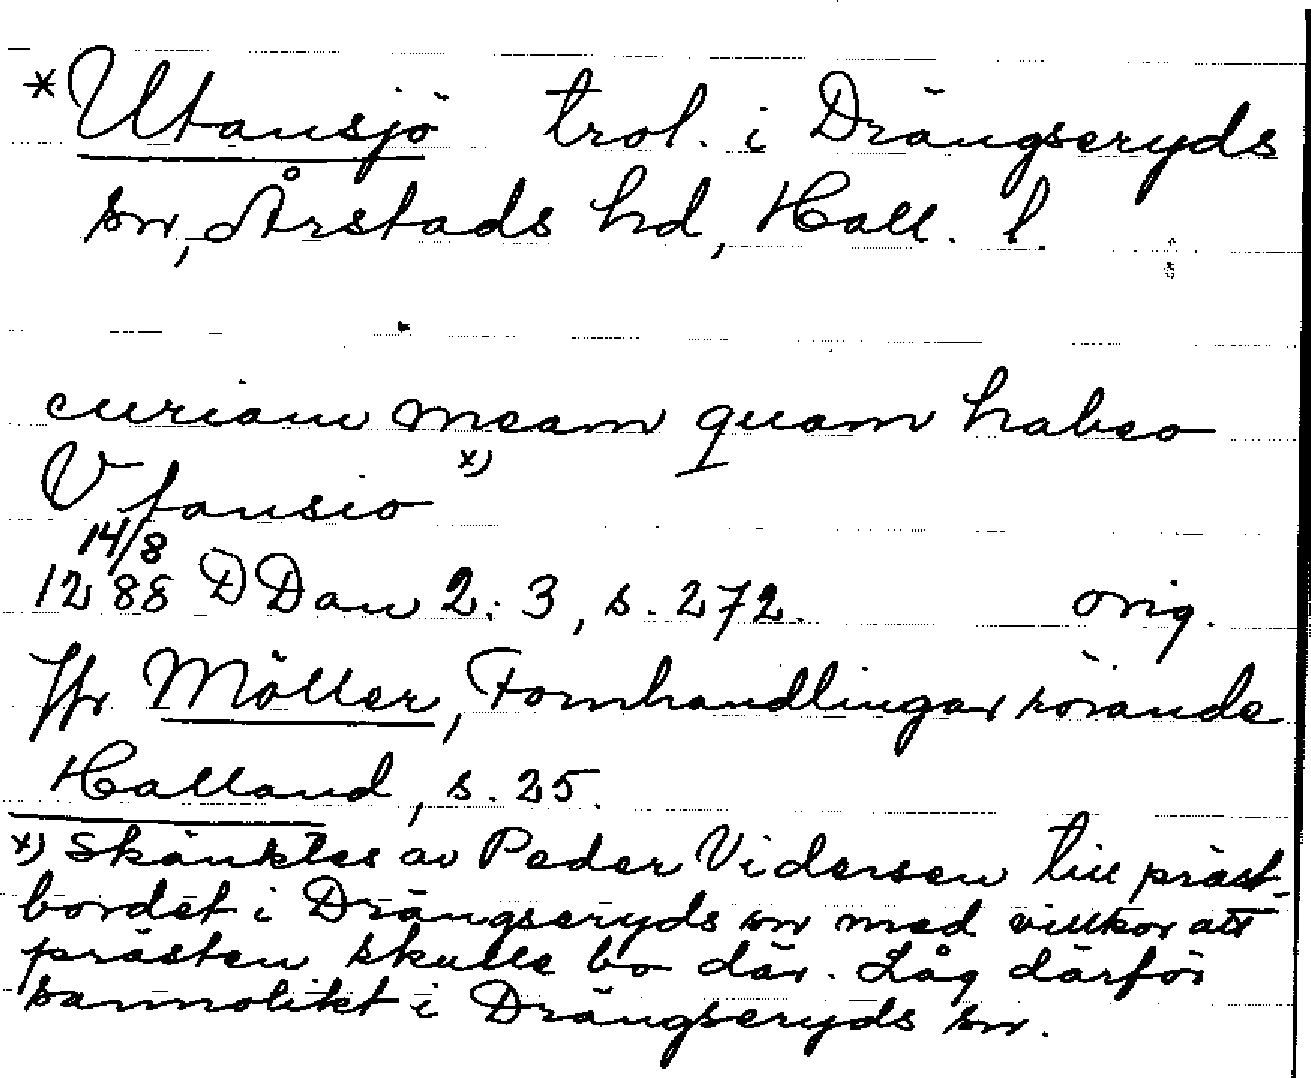 *Utansjö trol. i Drängseryds
sn, Årstads hd, Hall. l.
curiam meam quam habeo
Vtansio x)
14/8
1288 DDan 2:3, s. 272. orig.
Jfr Möller, Fornhandlingar rörande
Halland, s. 25.
x) Skänktes av Peder Vidersen till präst-
bordet i Drängseryds sn med villkor att
prästen skulle bo där. Låg därför
sannolikt i Drängseryds sn.